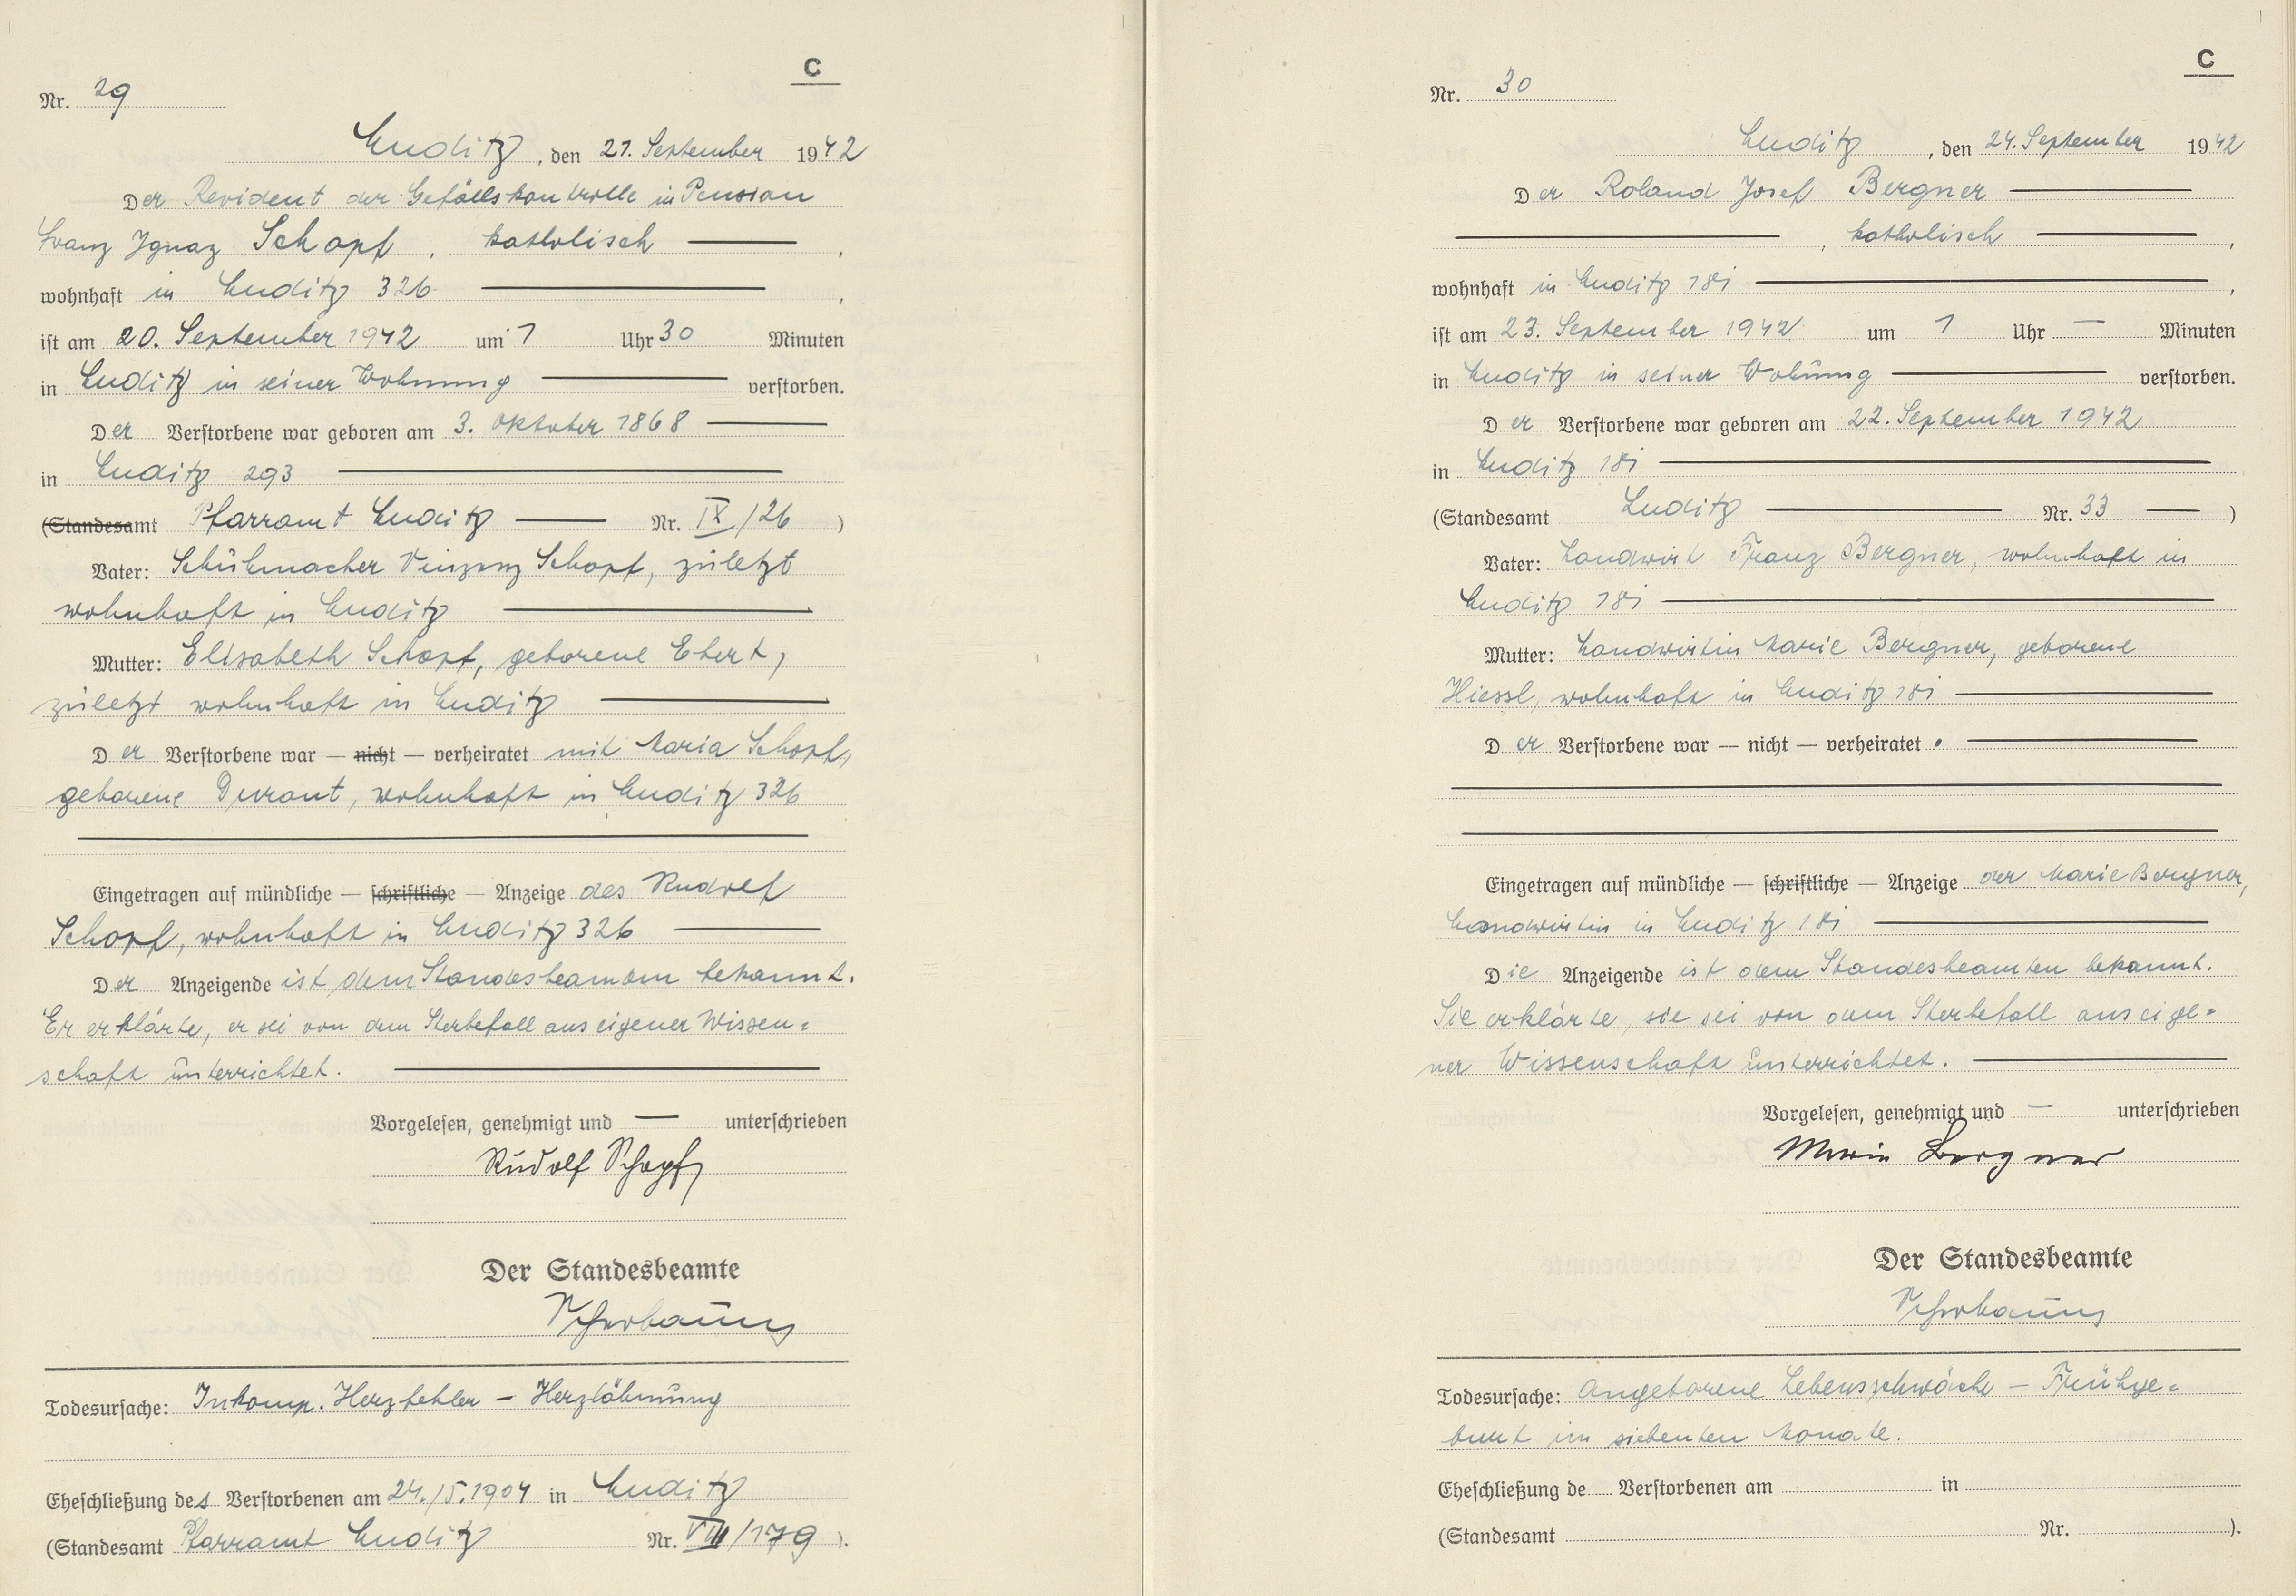 C
Nr. 29
Luditz, den 21. September 1942
Der Revident der Gefällskontrolle in Pension
Franz Ignaz Schopf, katholisch,
wohnhaft in Luditz 326,
ist am 20. September 1942 um 1 Uhr 30 Minuten
in Luditz in seiner Wohnung verstorben.
Der Verstorbene war geboren am 3. Oktober 1868
in Luditz 293
(Standesamt Pfarramt Luditz Nr. IX/26)
Vater: Schuhmacher Vinzenz Schopf, zuletzt
wohnhaft in Luditz
Mutter: Elisabeth Schopf, geborene Ebert,
zuletzt wohnhaft in Luditz
Der Verstorbene war — nicht — verheiratet mit Maria Schopf,
geborene Durant, wohnhaft in Luditz 326
Eingetragen auf mündliche — schriftliche — Anzeige des Rudolf
Schopf, wohnhaft in Luditz 326
Der Anzeigende ist dem Standesbeamten bekannt.
Er erklärte, er sei von dem Sterbefall aus eigener Wissen-
schaft unterrichtet.
Vorgelesen, genehmigt und — unterschrieben
Rudolf Schopf
Der Standesbeamte
Todesursache: Inkomp. Herzfehler – Herzlähmung
Eheschließung des Verstorbenen am 24./5.1904 in Luditz
(Standesamt Pfarramt Luditz Nr. VIII/179).
C
Nr. 30
Luditz, den 24. September 1942
Der Roland Josef Bergner
, katholisch,
wohnhaft in Luditz 181,
ist am 23. September 1942 um 1 Uhr — Minuten
in Luditz in seiner Wohnung verstorben.
Der Verstorbene war geboren am 22. September 1942
in Luditz 181
(Standesamt Luditz Nr. 33)
Vater: Landwirt Franz Bergner, wohnhaft in
Luditz 181
Mutter: Landwirtin Marie Bergner, geborene
Hiessl, wohnhaft in Luditz 181
Der Verstorbene war — nicht — verheiratet.
Eingetragen auf mündliche — schriftliche — Anzeige der Marie Bergner,
Landwirtin in Luditz 181
Die Anzeigende ist dem Standesbeamten bekannt.
Sie erklärte, sie sei von dem Sterbefall aus eige-
ner Wissenschaft unterrichtet.
Vorgelesen, genehmigt und — unterschrieben
Marie Bergner
Der Standesbeamte
Todesursache: Angeborene Lebensschwäche – Frühge-
burt im siebenten Monate.
Eheschließung de Verstorbenen am in
(Standesamt Nr. ).